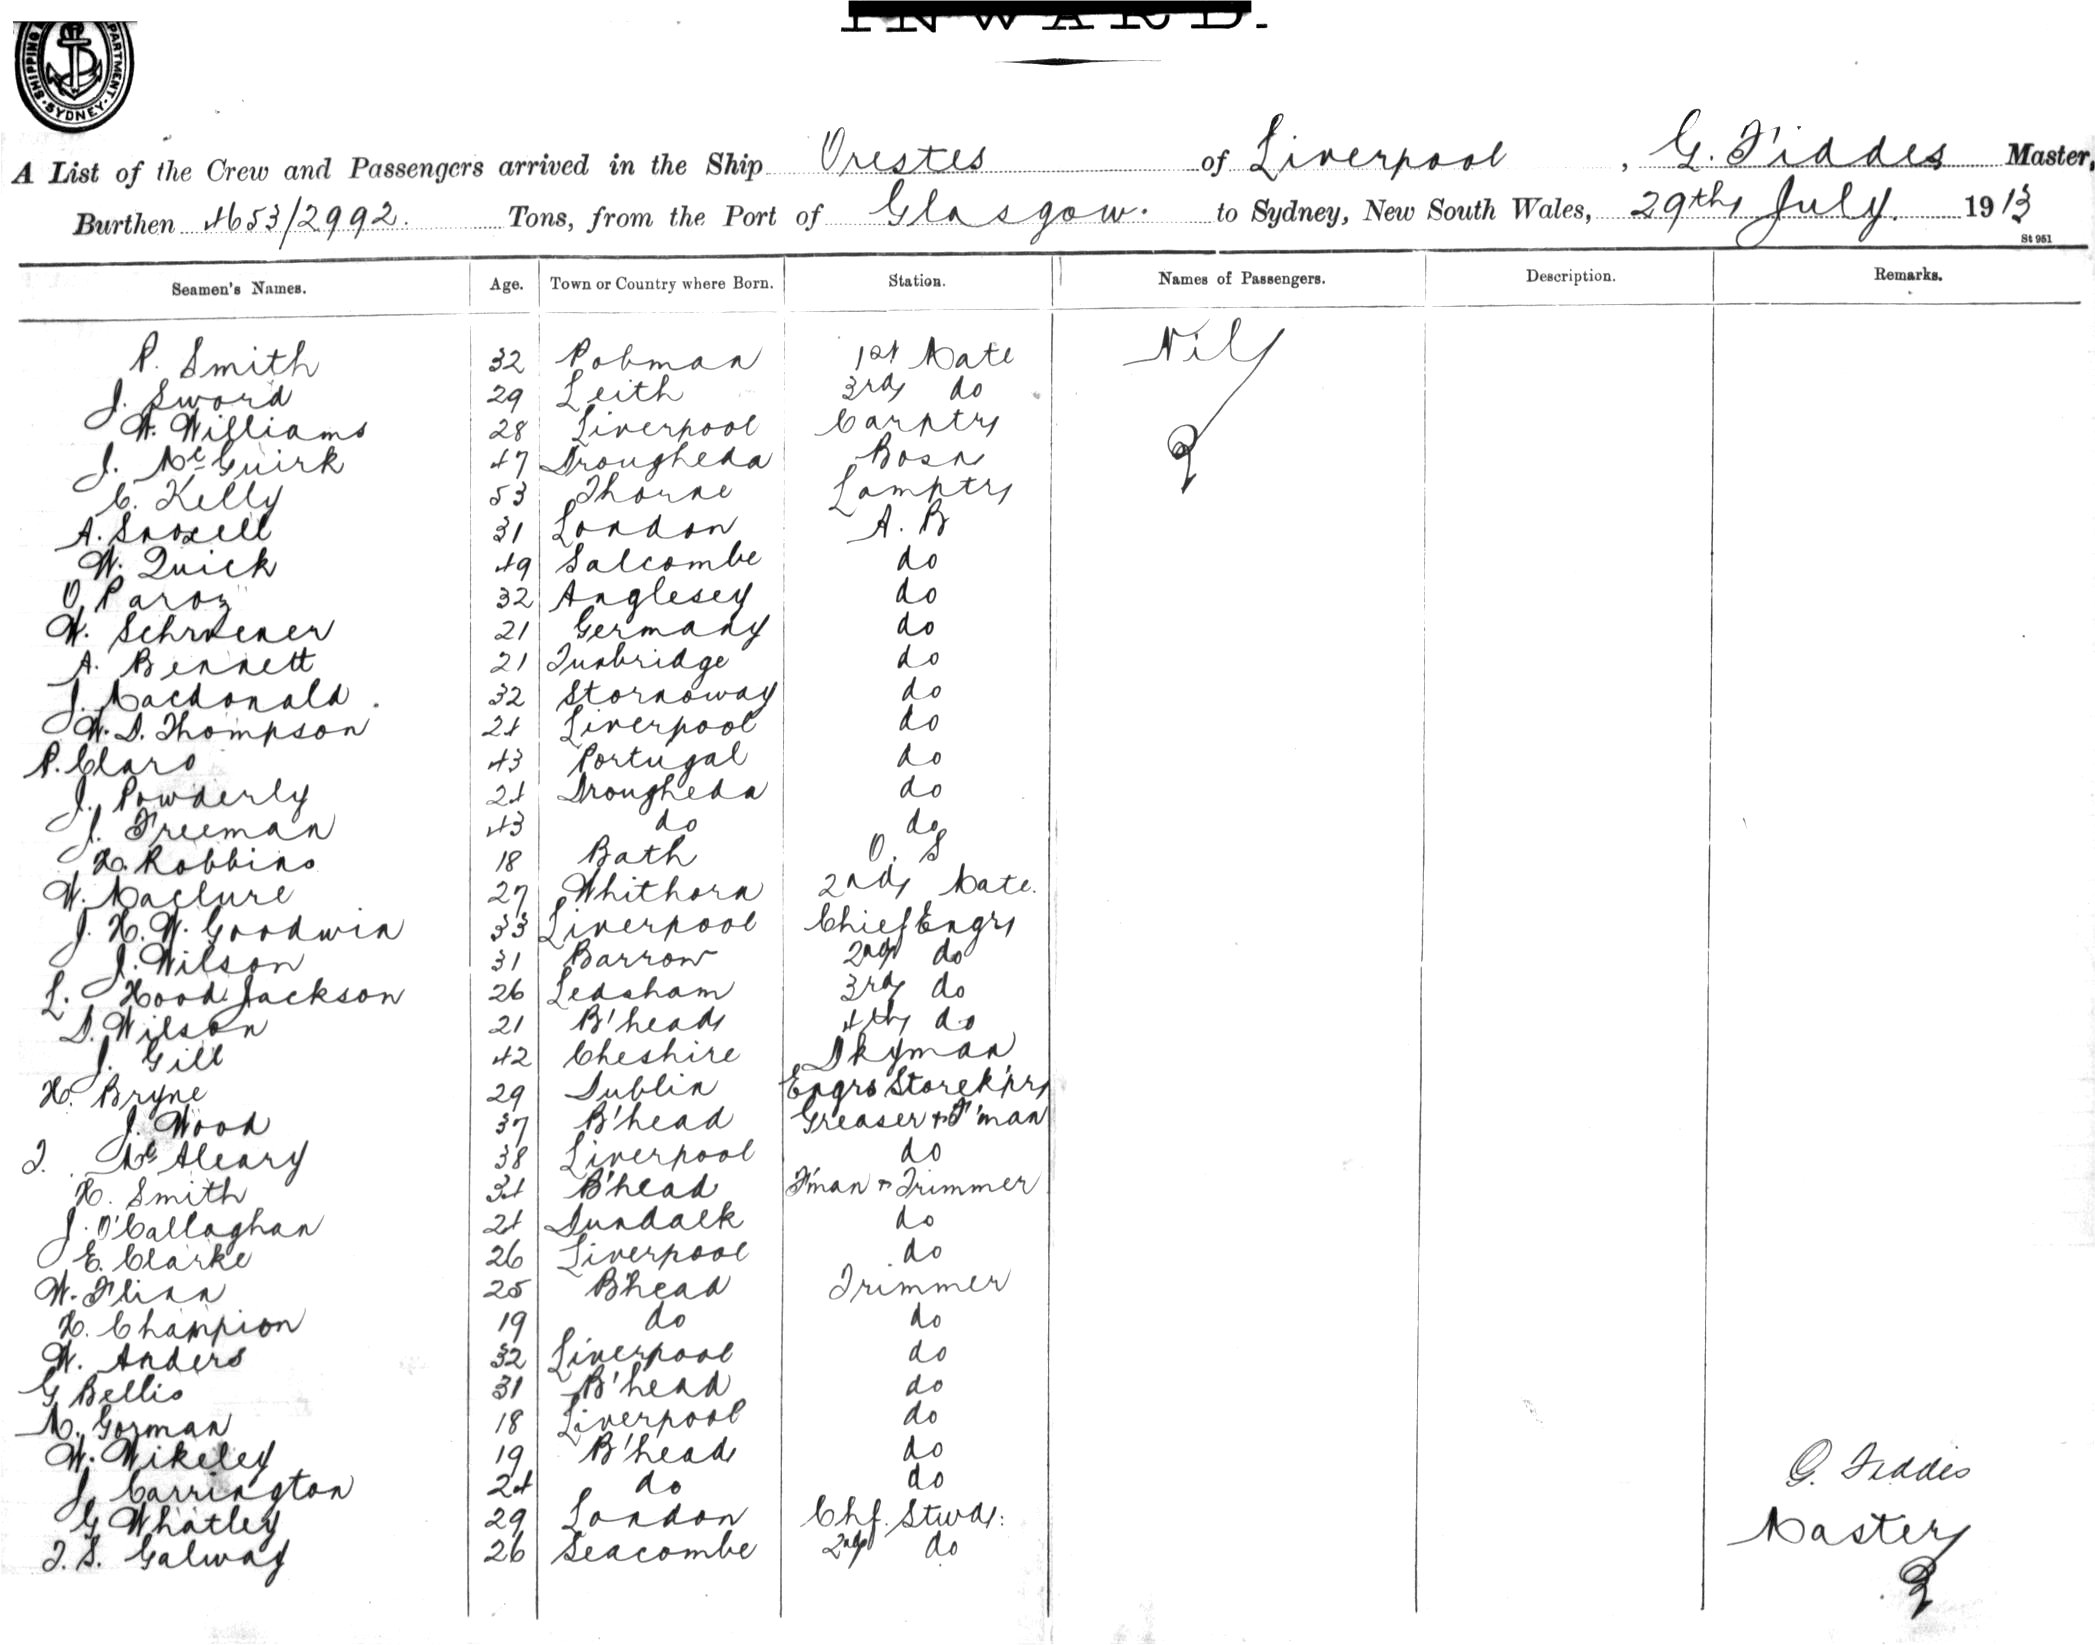 INWARD.
SHIPPING DEPARTMENT SYDNEY
A List of the Crew and Passengers arrived in the Ship Orestes of Liverpool, G. Fiddes Master,
Burthen 4653/2992. Tons, from the Port of Glasgow. to Sydney, New South Wales, 29th July. 1913
St 951
Seamen's Names. Age. Town or Country where Born. Station. Names of Passengers. Description. Remarks.
P. Smith 32 1st Mate Nil
J. Sword 29 Leith 3rd do
W. Williams 28 Liverpool Carptr
J. McGuirk 47 Drougheda Bosn
C. Kelly 53 Thorne Lamptr
A. Snoxell 31 London A. B
W. Quick 49 Salcombe do
O. Paroz 32 Anglesey do
W. 21 Germany do
A. Bennett 21 Tunbridge do
J. Macdonald 32 Stornoway do
W. D. Thompson 24 Liverpool do
P. Claro 43 Portugal do
J. Powderly 24 Drougheda do
J. Freeman 43 do do
H. Robbins 18 Bath O. S
W. Maclure 27 Whithorn 2nd Mate.
J. H. W. Goodwin 33 Liverpool Chief Engr
J. Wilson 31 Barrow 2nd do
L. Hood Jackson 26 Ledsham 3rd do
D. Wilson 21 B'head 4th do
J. Gill 42 Cheshire Dkyman
H. Bryne 29 Dublin Engrs Storek'pr
J. Wood 37 B'head Greaser + F'man
T. McAleary 38 Liverpool do
H. Smith 34 B'head F'man + Trimmer
J. O'Callaghan 24 Dundalk do
E. Clarke 26 Liverpool do
W. Flinn 25 B'head Trimmer
H. Champion 19 do do
W. Anders 32 Liverpool do
G Bellis 31 B'head do
M. Gorman 18 Liverpool do
W. Wikeley 19 B'head do
J. Carrington 24 do do
G Whatley 29 London Chf. Stwd:
T. S. Galway 26 Seacombe 2nd do
G. Fiddes
Master